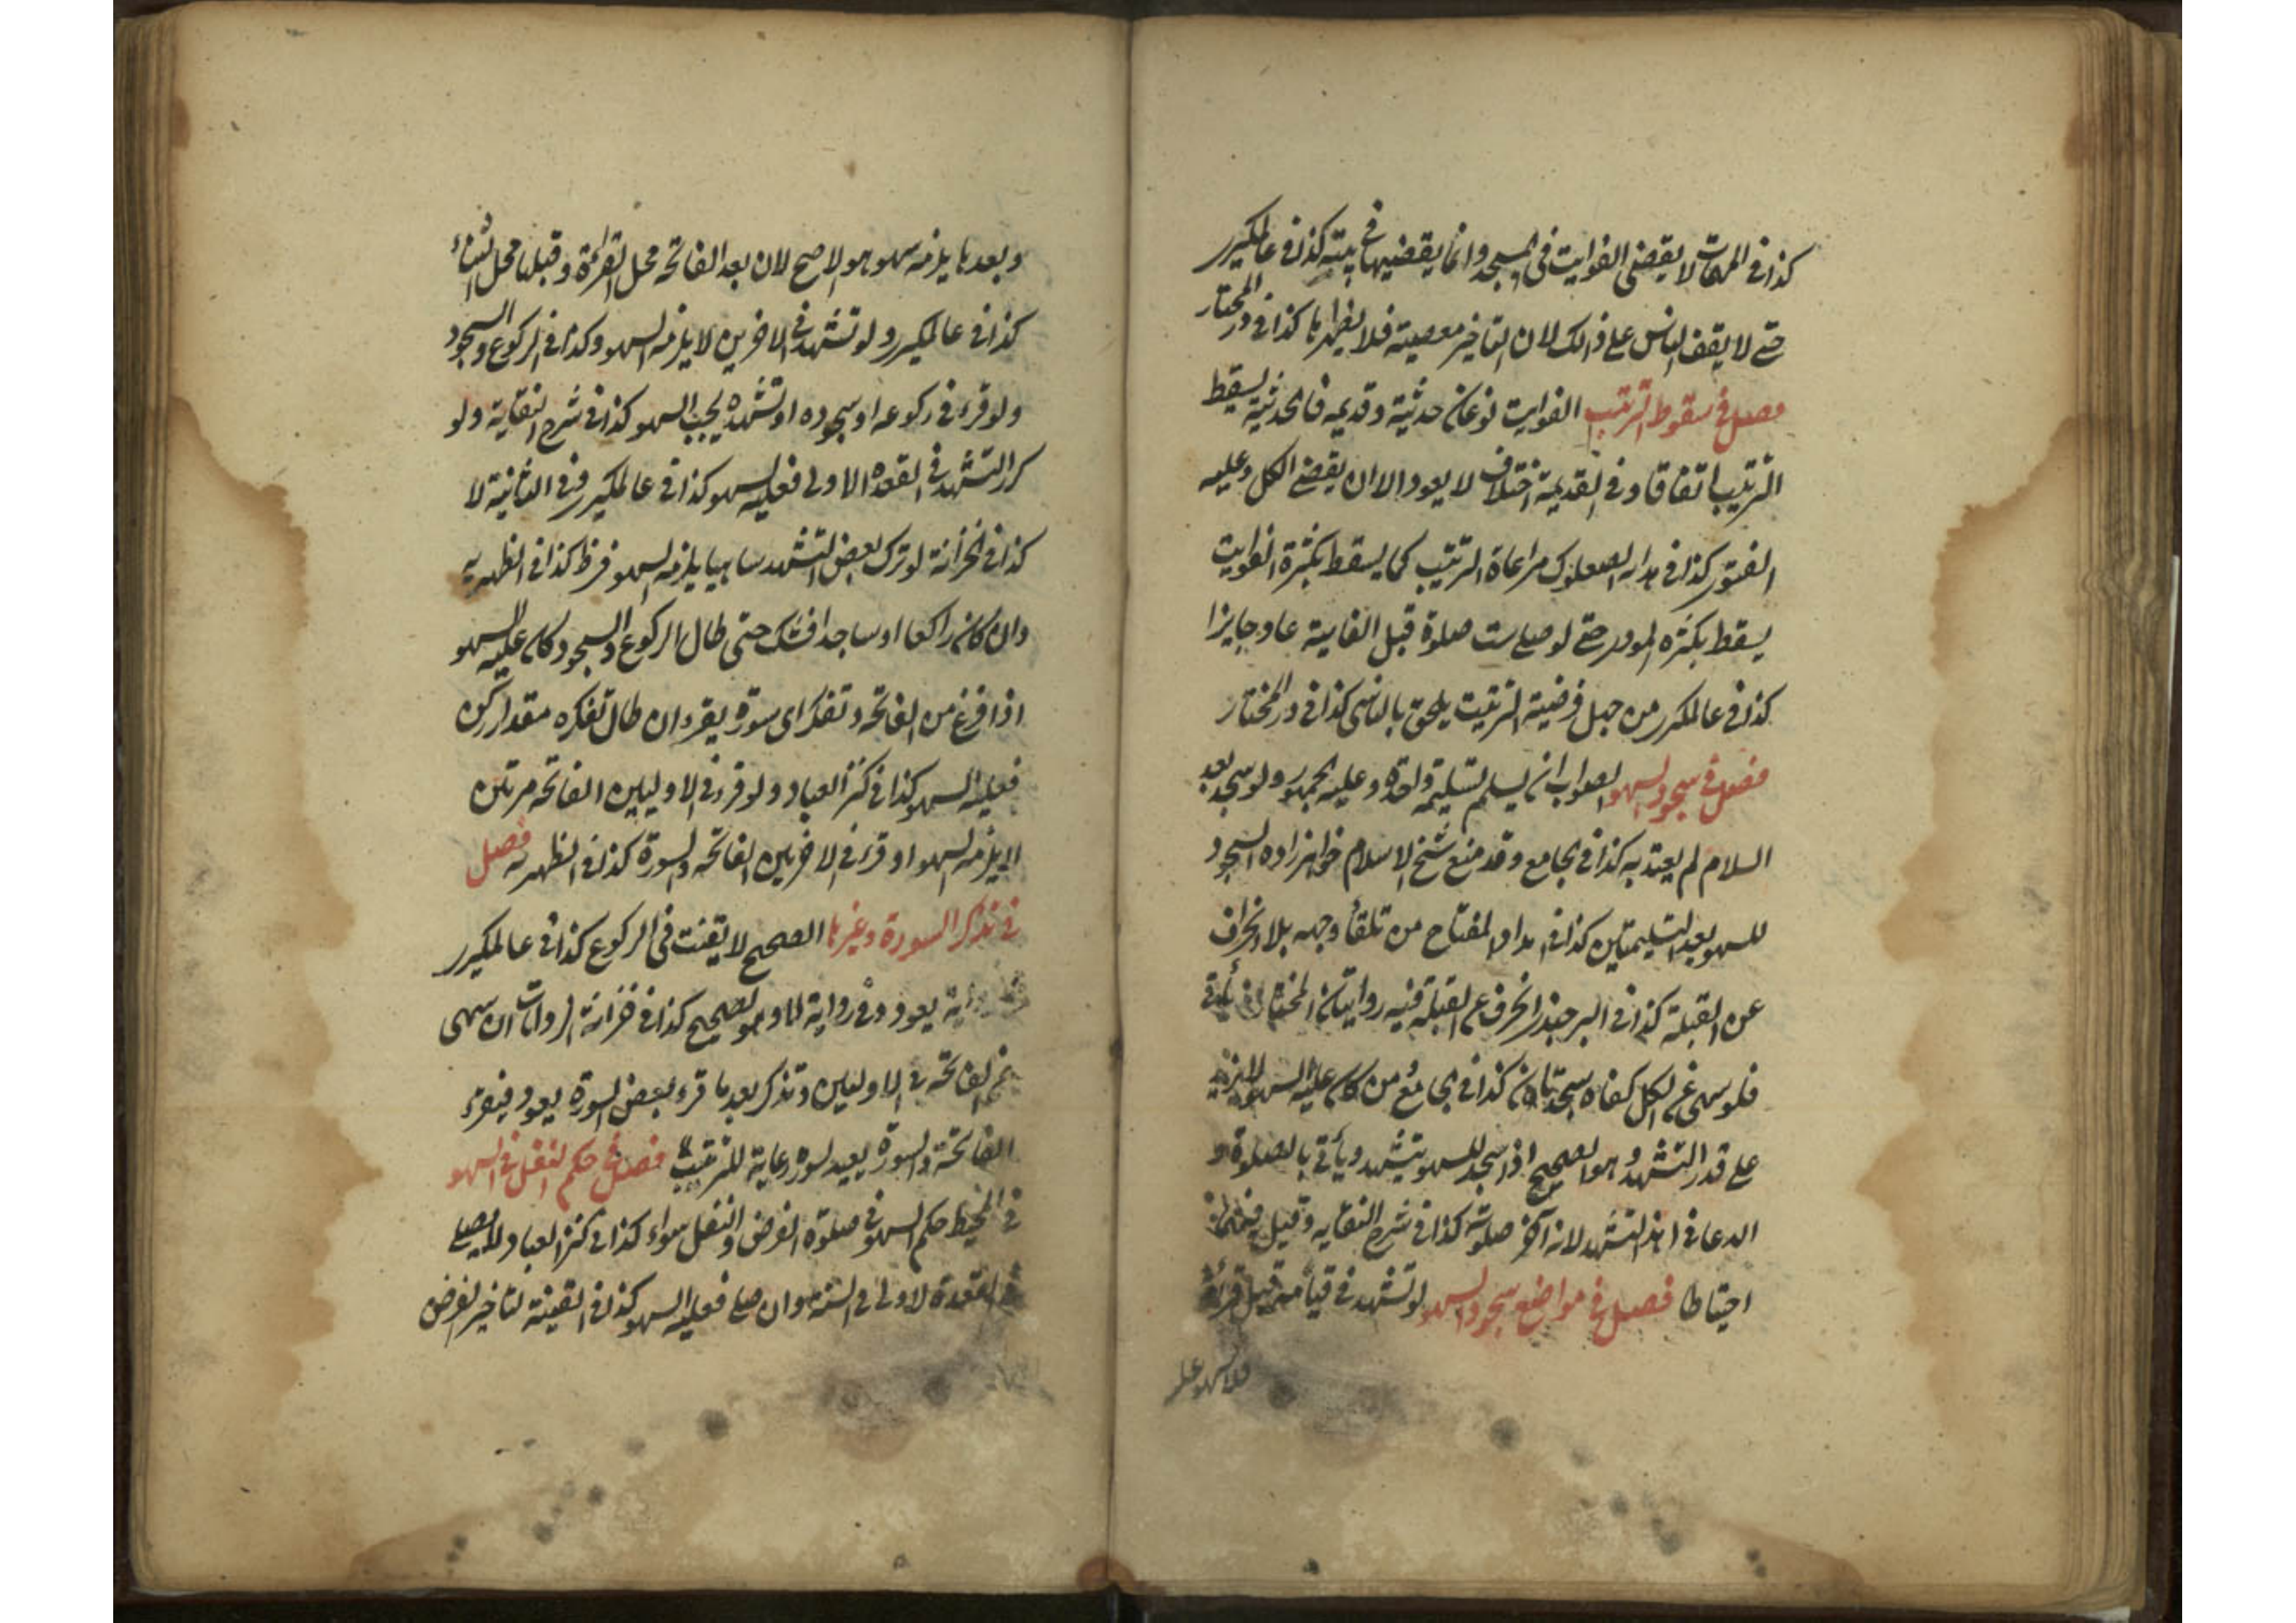 كذا في المهمات لا يقضي الفوايت في المسجد وانما يقضيها في بيته كذا في عالمكيرر
حتى لا يقف الناس على ذالك لان التاخير معصية فلا يظهرها كذا في در المختار
فصل في سقوط الترتيب الفوايت نوعان حديثة وقديمه فالحديثة يسقط
الترتيب اتفاقا وفي القديمة اختلاف لا يعود الا ان يقضي الكل وعليه
الفتوى كذا في الصعلوك مراعاة الترتيب كما يسقط بكثرة الفوايت
يسقط بكثره المودى حتى لو صلى ست صلوة قبل الفايتة عاد جايزا
كذا في عالمكيرر من جهل فرضية الترتيب يلحق بالناسي كذا في در المختار
فصل في سجود السهو الصواب ان يسلم تسليمة واحدة وعليه الجمهور ولو سجد بعد
السلام لم يعتد به كذا في الجامع وقد منع شيخ الاسلام خواهرزاده السجود
للسهو بعد التسليمتين كذا في المفتاح من تلقأ وجهه بلا انحراف
عن القبلة كذا في البرجندي انحرف عن القبلة ففيه روايتان المختار ان يأتي
فلو سهى عن الكل كفاه سجدتان كذا في الجامع من كان عليه السهو
على قدر التشهد وهو الصحيح اذا سجد للسهو يتشهد ويأتي بالصلوة و
الدعا في هذا التشهد لانه آخر صلوته كذا في شرح النقايه وقيل فيهما
احتياطا فصل في مواضع سجود السهو لو تشهد في قيامه قبل قرأة
فلا سهو عليه
وبعدها يلزمه سهو هو الاصح لان بعد الفاتحه محل القرأة وقبلها محل الثناء
كذا في عالمكيرر ولو تشهد في الاخرين لا يلزمه السهو وكذا في الركوع والسجود
ولو قرء في ركوعه او سجوده او تشهده يجب السهو كذا في شرح النقاية ولو
كرر التشهد في القعدة الاولى فعليه السهو كذا في عالمكيرر في الثانية لا
كذا في الخزانة لو ترك بعض التشهد ساهيا يلزمه السهو كذا في الظهيريه
وان كان راكعا او ساجدا فشك حتى طال الركوع والسجود كان عليه السهو
اذا فرغ من الفاتحه وتفكر اى سورة يقرء ان طال تفكره مقدار ركن
فعليه السهو كذا في كنز العباد ولو قرء في الاوليين الفاتحه مرتين
يلزمه السهو او قرء في الاخريين الفاتحه والسورة كذا في الظهيريه فصل
في تذكر السورة وغيرها الصحيح لا يقنت في الركوع كذا في عالمكيرر
يعود وفي رواية لا وهو الصحيح كذا في خزانة الروايات ان سهى
عن الفاتحه في الاوليين وتذكر بعد ما قرء بعض السورة يعود فيقرء
الفاتحة والسورة يعيد السورة رعاية للترتيب فصل في حكم النفل في السهو
في المحيط حكم السهو في صلوة الفرض والنفل سواء كذا في كنز العباد ولا يصلي
في القعدة الاولى في السنة وان صلى فعليه السهو كذا في القنية لتاخير الفرض